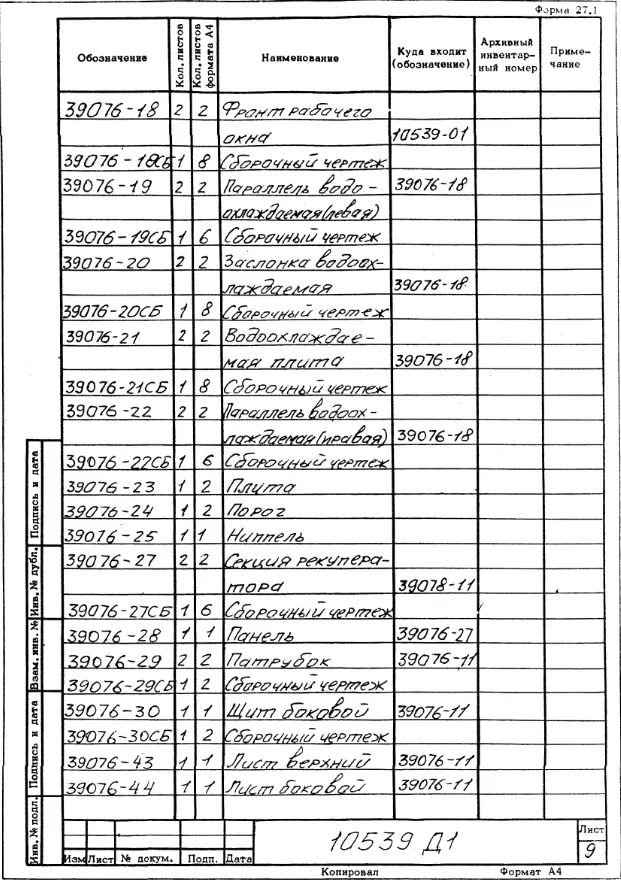 Форма 27.1
Обозначение Кол. листов Кол. листов формата А4 Наименование Куда входит (обозначение) Архивный инвентар-ный номер Приме-чание
39076-18 2 2 Фронт рабочего
окна 10539-01
39076-18СБ 1 8 Сборочный чертеж
39076-19 2 2 Параллель водо- 39076-18
охлаждаемая(левая)
39076-19СБ 1 6 Сборочный чертеж
39076-20 2 2 Заслонка водоох-
лаждаемая 39076-18
39076-20СБ 1 8 Сборочный чертеж
39076-21 2 2 Водоохлаждае-
мая плита 39076-18
39076-21СБ 1 8 Сборочный чертеж
39076-22 2 2 Параллель водоох-
лаждаемая(правая) 39076-18
39076-22СБ 1 6 Сборочный чертеж
39076-23 1 2 Плита
39076-24 1 2 Порог
39076-25 1 1 Ниппель
39076-27 2 2 Секция рекупера-
тора 39078-11
39076-27СБ 1 6 Сборочный чертеж
39076-28 1 1 Панель 39076-27
39076-29 2 2 Патрубок 39076-11
39076-29СБ 1 2 Сборочный чертеж
39076-30 1 1 Щит боковой 39076-11
39076-30СБ 1 2 Сборочный чертеж
39076-43 1 1 Лист верхний 39076-11
39076-44 1 1 Лист боковой 39076-11
Инв. № подл. Подпись и дата Взам. инв. № Инв. № дубл. Подпись и дата
10539 Д1
Лист
9
Изм Лист № докум. Подп. Дата
Копировал Формат А4